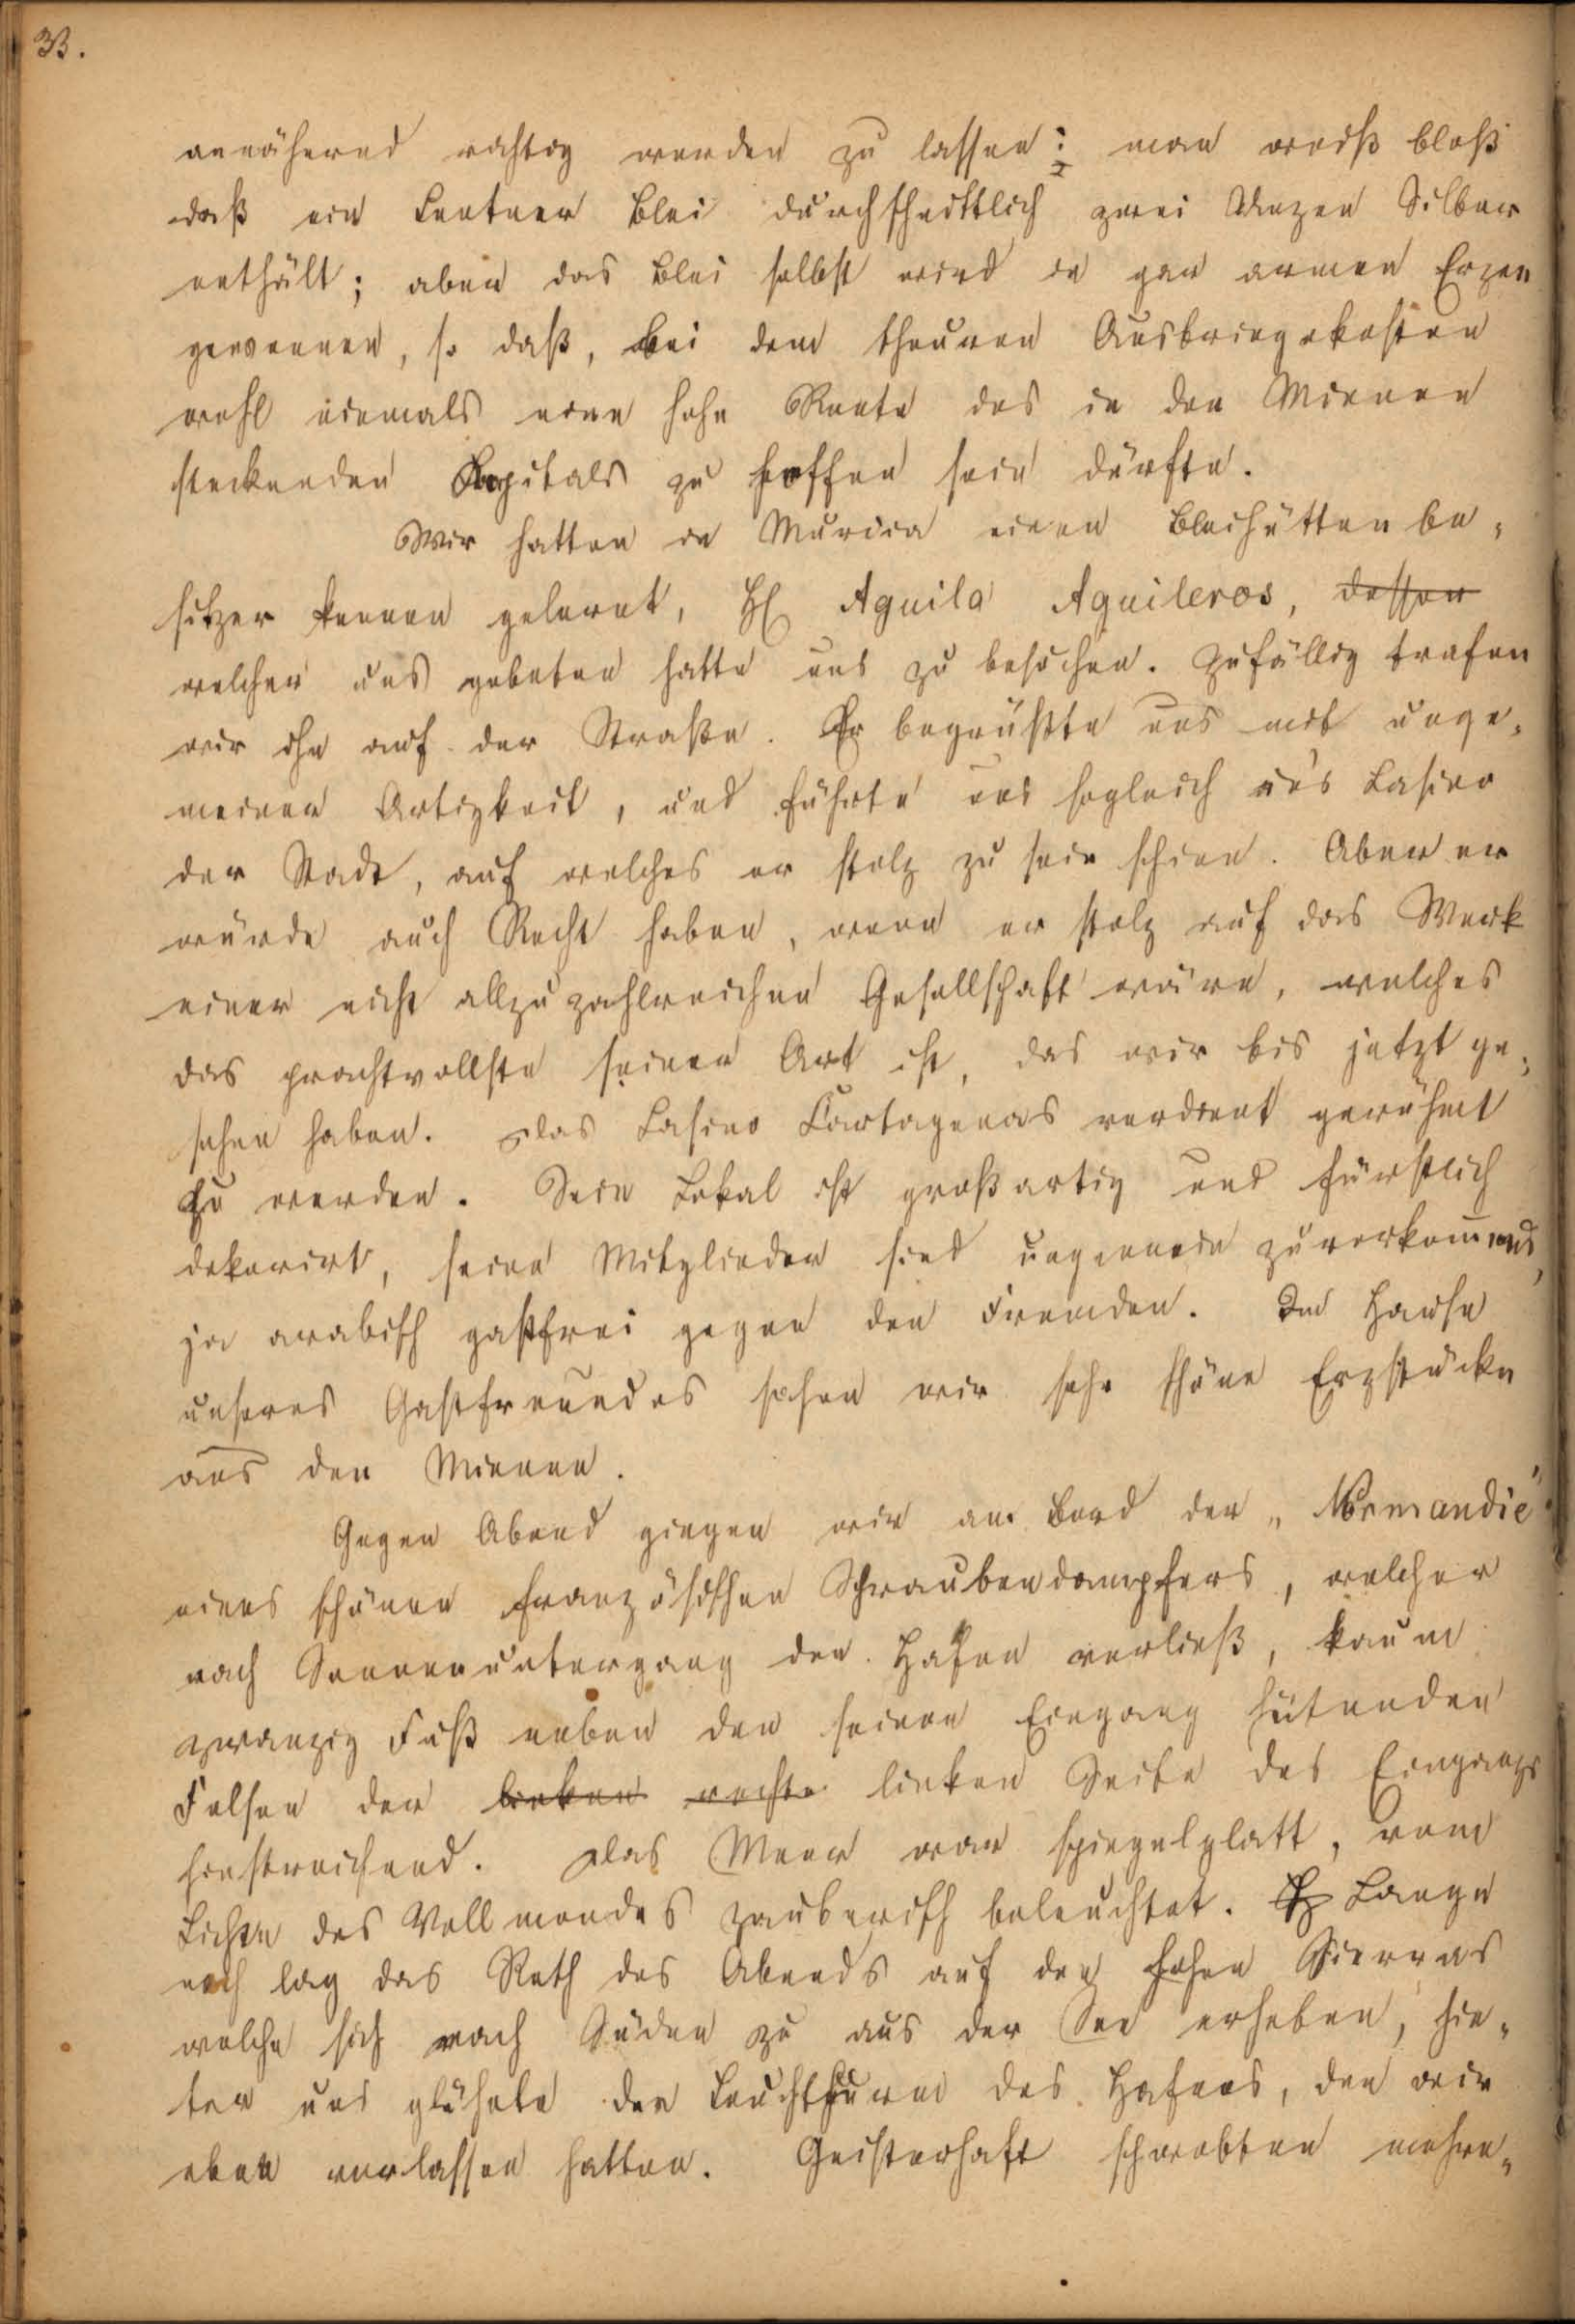 33.
annähernd richtig werden zu lassen: man weiß bloß
daß ein Centner Blei durchschnittlich zwei Unzen Silber
enthält; aber das Blei selbst wird in gar armen Erzen
gewonnen, so daß, bei dem theuren Ausbringekosten
wohl niemals eine hohe Rente des in den Minen
steckenden Capitals zu hoffen sein dürfte.
Wir hatten in Murcia einen Bleihüttenbe-
sitzer kennen gelernt, H Aguila Aguileros, dessen
welcher uns gebeten hatte uns zu besuchen. Zufällig trafen
wir ihn auf der Straße. Er begrüßte uns mit unge-
meiner Artigkeit, und führte uns sogleich in's Casino
der Stadt, auf welches er stolz zu sein schien. Aber er
würde auch Recht haben, wenn er stolz auf das Werk
einer nicht allzu zahlreichen Gesellschaft wäre, welches
das prachtvollste seiner Art ist, das wir bis jetzt ge-
sehen haben. Das Casino Cartagenas verdient gerühmt
zu werden. Sein Lokal ist großartig und fürstlich
dekorirt, seine Mitglieder sind ungemein zuvorkommend,
ja arabisch gastfrei gegen den Fremden. Im Hause
unseres Gastfreundes sahen wir sehr schöne Erzstücke
aus den Minen.
Gegen Abend gingen wir an Bord der „Normandie"
eines schönen französischen Schraubendampfers, welcher
nach Sonnenuntergang den Hafen verließ, kaum
zwanzig Fuß neben den seinen Eingang hütenden
Felsen der linken rechte linken Seite des Eingangs
hinstreichend. Das Meer war spiegelglatt, vom
Lichte des Vollmondes zauberisch beleuchtet. Lange
noch lag das Roth des Abends auf den hohen Sierras
welche sich nach Süden zu aus der See erheben, hin-
ter uns glühte der Leuchtthurm des Hafens, den wir
eben verlassen hatten. Geisterhaft schwebten mehre-